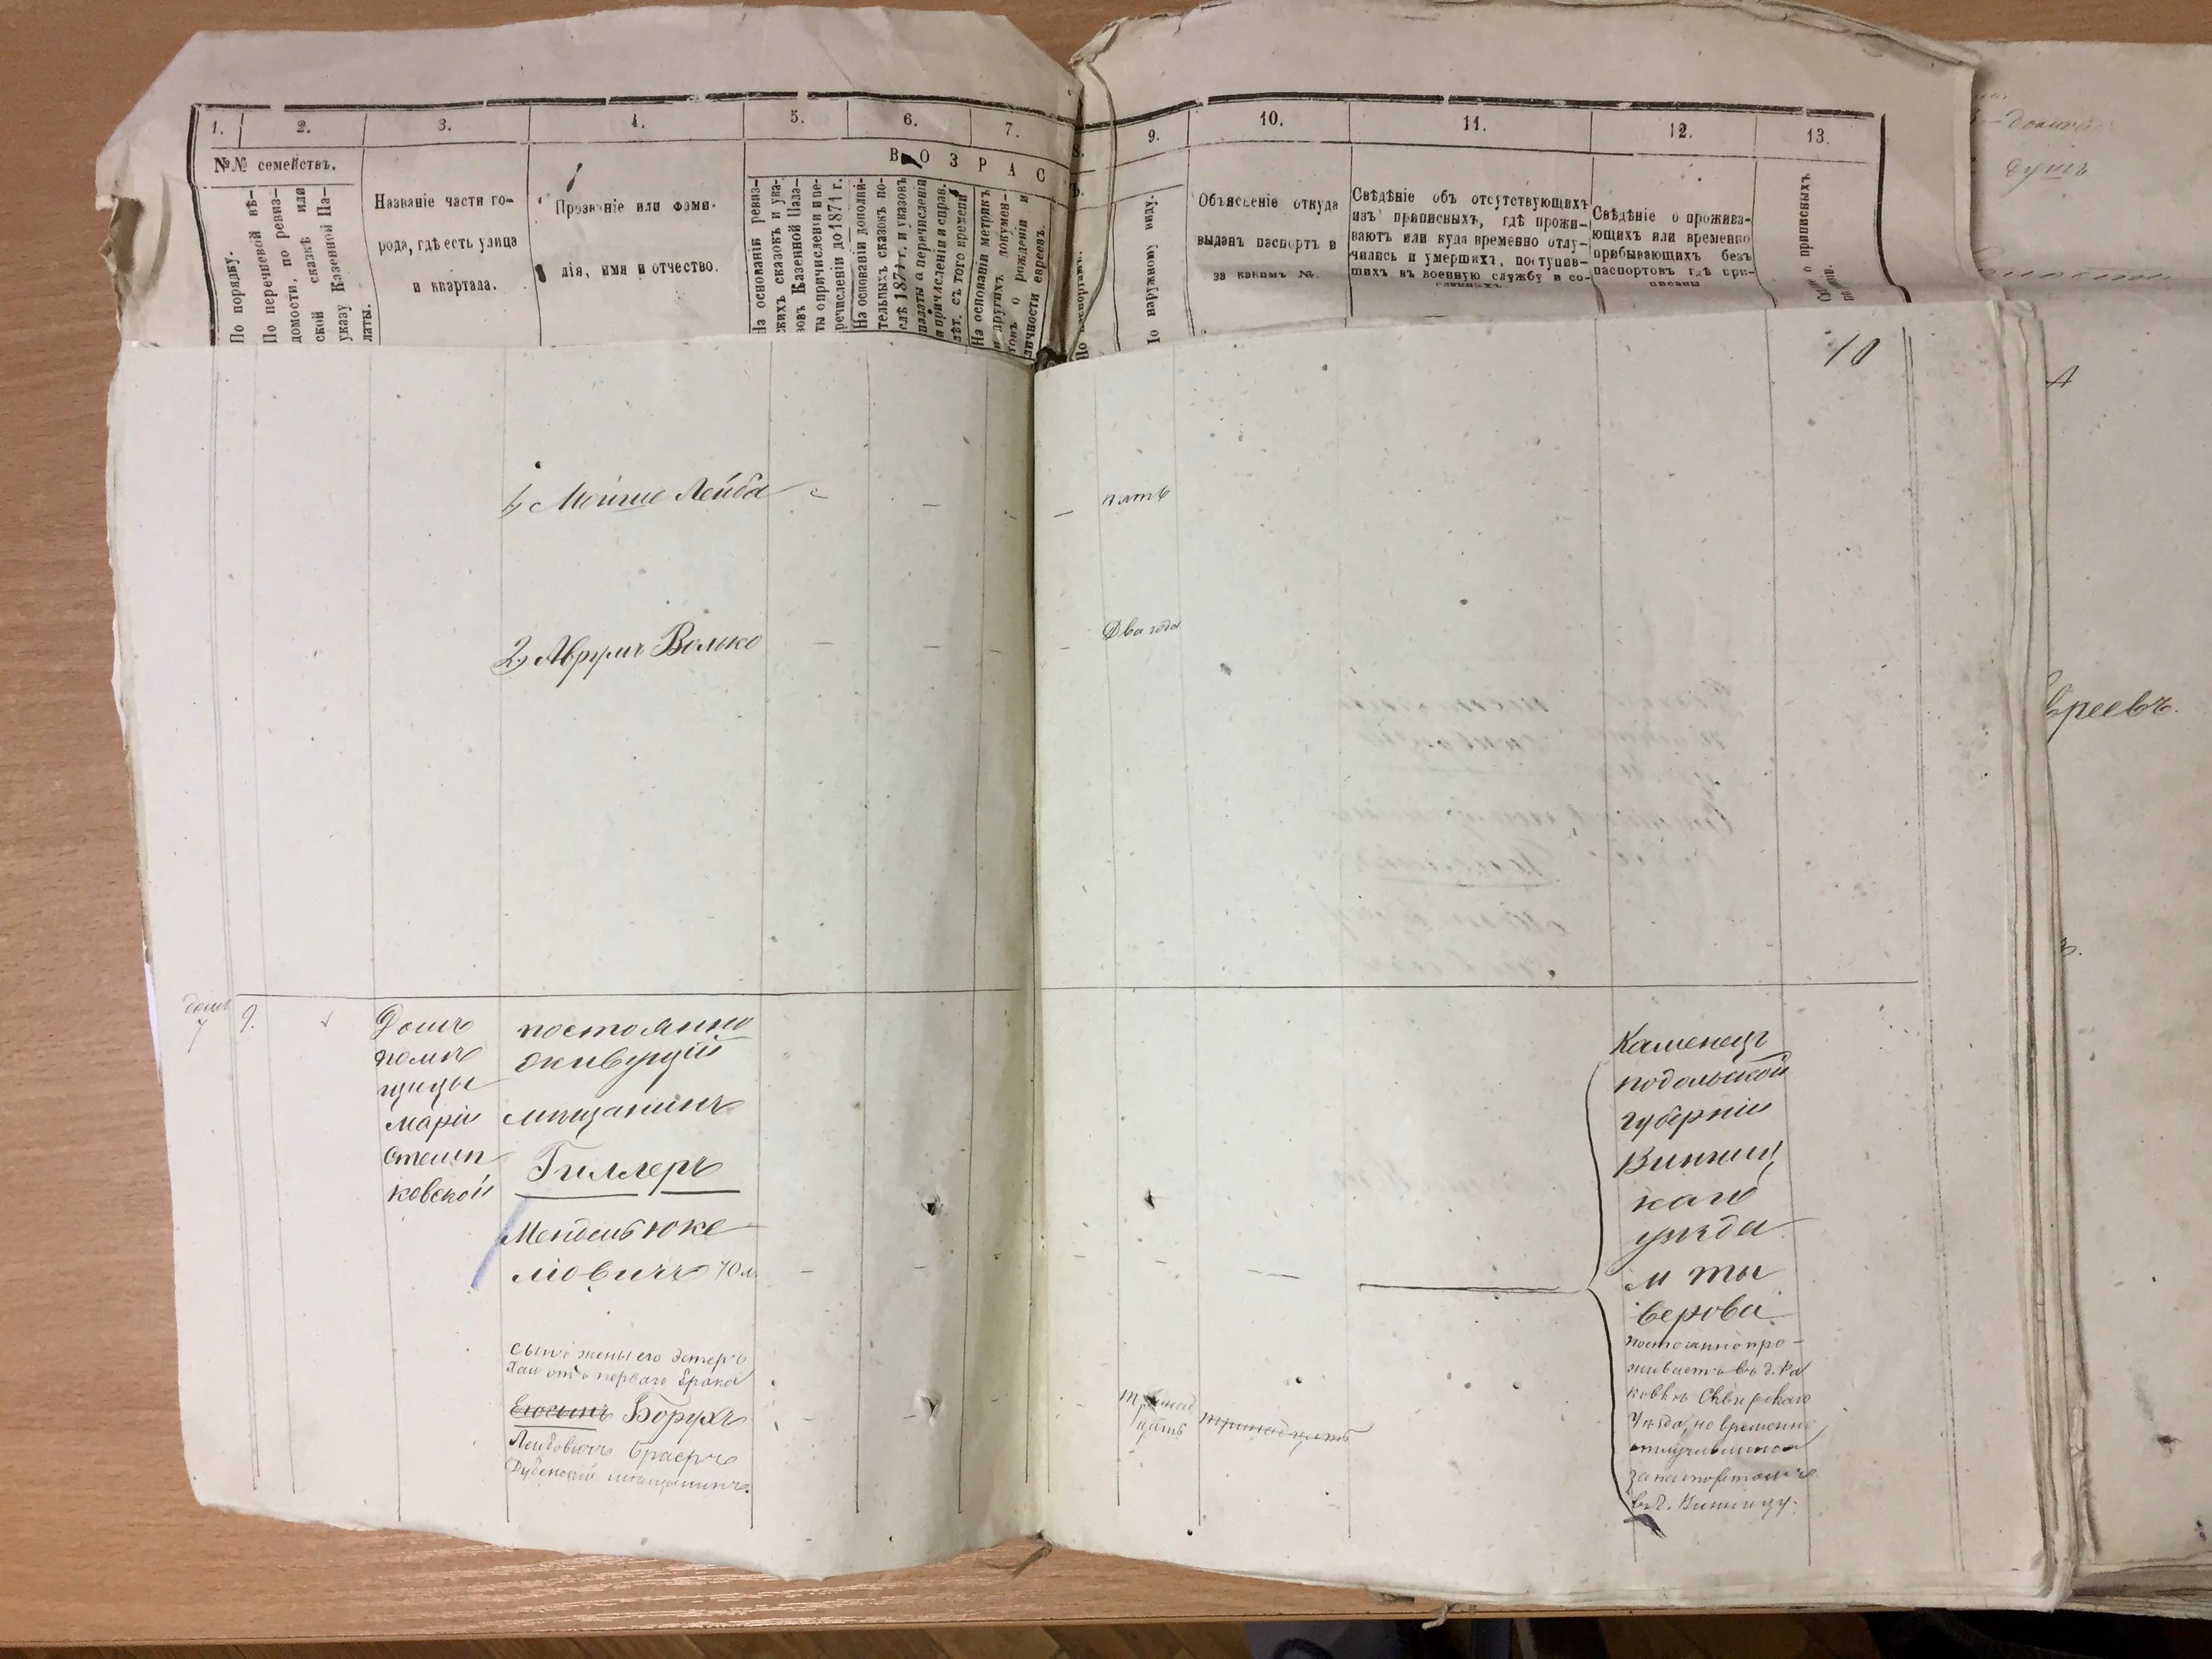 1.
2.
3.
4.
5.
6.
7.
8.
9.
10.
11.
12.
13.
№№ семействъ.
По порядку.
По перечневой вѣ-
домости, по ревиз-
ской сказкѣ или
указу Казенной Па-
латы.
Названіе части го-
рода, гдѣ есть улица
и квартала.
Прозваніе или фами-
лія, имя и отчество.
ВОЗРАС
На основаніи ревиз-
скихъ сказокъ и ука-
зовъ Казенной Пала-
ты о причисленіи и пе-
речисленіи до 1871 г.
На основаніи дополни-
тельныхъ сказокъ по-
слѣ 1871 г. и указовъ
палаты о перечисленіи
и причисленіи и справ.
лѣт. съ того времени
На основаніи метрикъ
и другихъ докумен-
товъ о рожденіи и
личности евреевъ.
По паспортамъ.
По наружному виду.
Объясненіе откуда
выданъ паспортъ и
за какимъ №.
Свѣдѣніе объ отсутствующихъ
изъ приписныхъ, гдѣ прожи-
ваютъ или куда временно отлу-
чились и умершихъ, поступив-
шихъ въ военную службу и со-
сланныхъ.
Свѣдѣніе о прожива-
ющихъ или временно
прибывающихъ безъ
паспортовъ гдѣ при-
писаны
о приписныхъ
10
1, Мойше Лейба
пять
2, Аврумъ Волько
Два года
домъ
7
9.
Домъ
помѣ
щицы
Маріи
Стемп
ковской
постоянно
живущій
мѣщанинъ
Гиллеръ
Мендель Юке
ліовичъ 70 л.
сынъ жены его Эстеръ
Хаи отъ перваго брака
Его сынъ Борухъ
Лейбовичъ Браеръ
Дубенскій мѣщанинъ.
тринад
цать
тринадцать
Каменец
подольской
губерніи
Винниц
каго
уѣзда
м ты
верова
постоянно про-
живаетъ въ д. Ра
ковкѣ Сквирскаго
Уѣзда, но временно
отлучившійся
за паспортомъ
въ г. Винницу.
душъ
евреевъ.